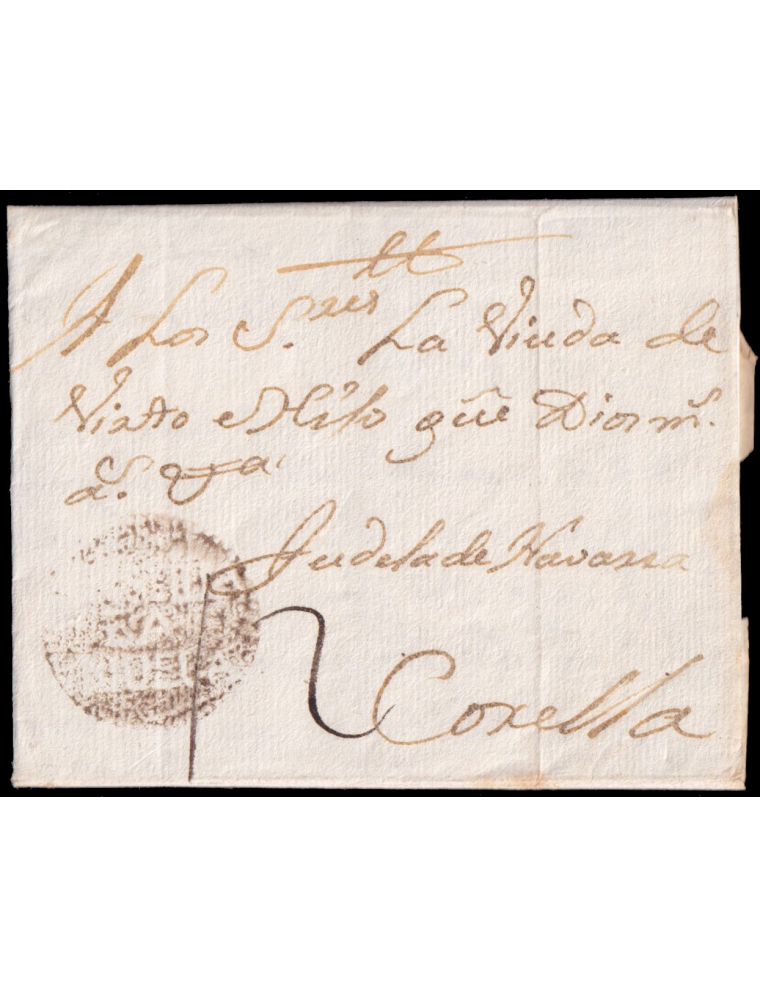 A Los S.res La Viuda de
Virto e Hijo que Dios m.s
a.s
Tudela de Navarra
12
Corella